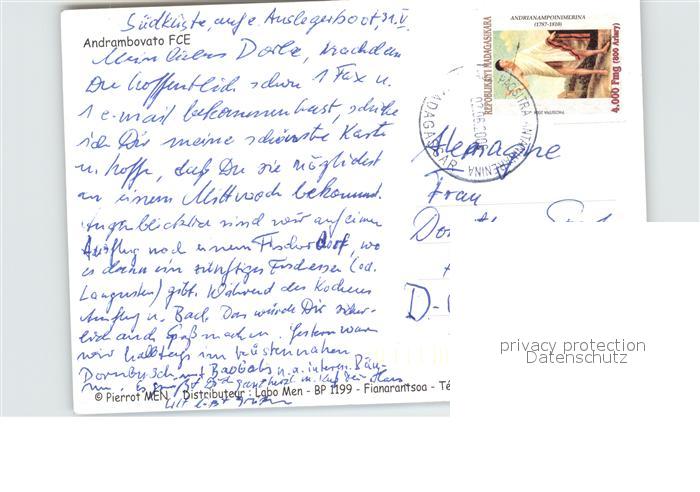 Südküste, auf e. Auslegerboot, 31. V.
Andrambovato FCE
Mein liebes Dorle, nachdem
Du hoffentlich schon 1 Fax u.
1 e-mail bekommen hast, schicke
ich Dir meine schönste Karte
u. hoffe, daß Du sie möglichst
an einem Mittwoch bekommst.
Augenblicklich sind wir auf einem
Ausflug nach einem Fischerdorf, wo
es dann ein zünftiges Fischessen (od.
Langusten) gibt. Während des Kochens
Ausflug u. Bad. Das würde Dir sicher-
lich auch Spaß machen. Gestern waren
wir halbtags im küstennahen
Dornbusch mit Baobabs u. a. interess. Bäu-
men. Es grüßt Dich ganz herzl.
© Pierrot MEN Distributeur : Labo Men - BP 1199 - Fianarantsoa - Té
ANDRIANAMPOINIMERINA
(1787-1810)
REPOBLIKAN'I MADAGASIKARA
4.000 Fmg (800 Ariary)
MADAGASCAR
Alemagne
Frau
D-
privacy protection
Datenschutz